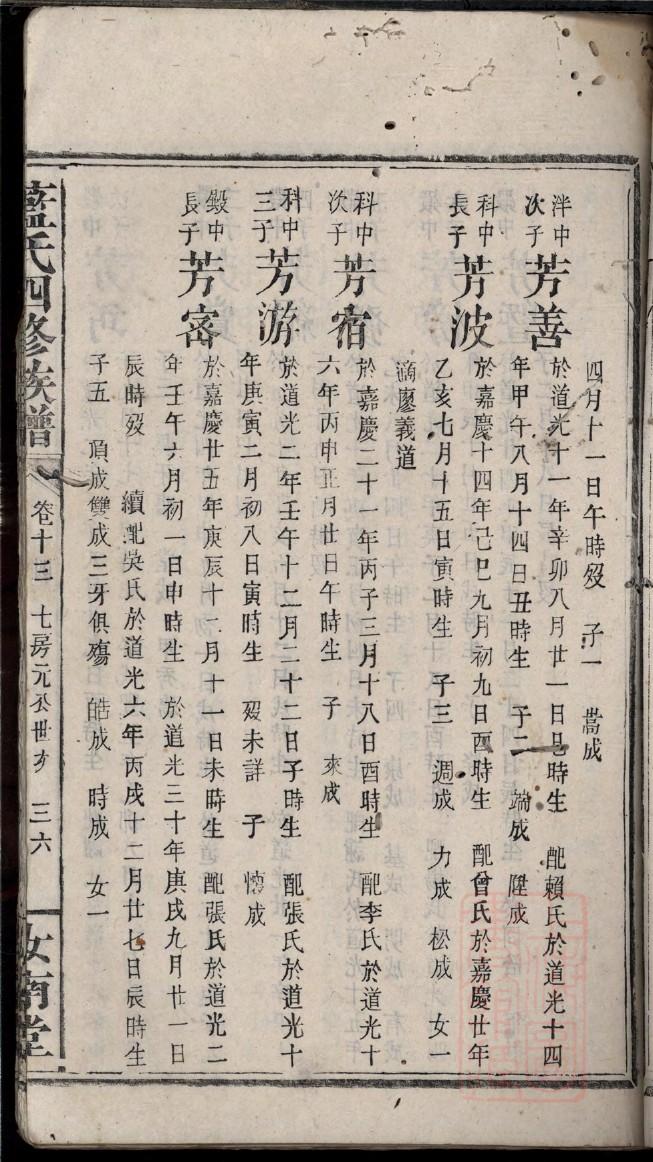 四月十一日午時殁 子一 蒿成
泮中次子 芳善 於道光十一年辛卯八月廿一日巳時生 配賴氏於道光十四
年甲午八月十四日丑時生 子二 端成 陞成
科中長子 芳波 於嘉慶十四年己巳九月初九日酉時生 配曾氏於嘉慶廿年
乙亥七月十五日寅時生 子三 週成 力成 松成 女一
滴廖義道
科中次子 芳宿 於嘉慶二十一年丙子三月十八日酉時生 配李氏於道光十
六年丙申正月廿日午時生 子 來成
科中三子 芳游 於道光二年壬午十二月二十二日子時生 配張氏於道光十
年庚寅二月初八日寅時生 殁未詳 子 懷成
鍛中長子 芳密 於嘉慶廿五年庚辰十二月十一日未時生 配張氏於道光二
年壬午六月初一日申時生 於道光三十年庚戌九月廿一日
辰時殁 續配吳氏於道光六年丙戌十二月廿七日辰時生
子五 頂成雙成三牙俱殤 皓成 時成 女一
藍氏四修族譜 卷十三 七房元公世方 三六 汝南堂